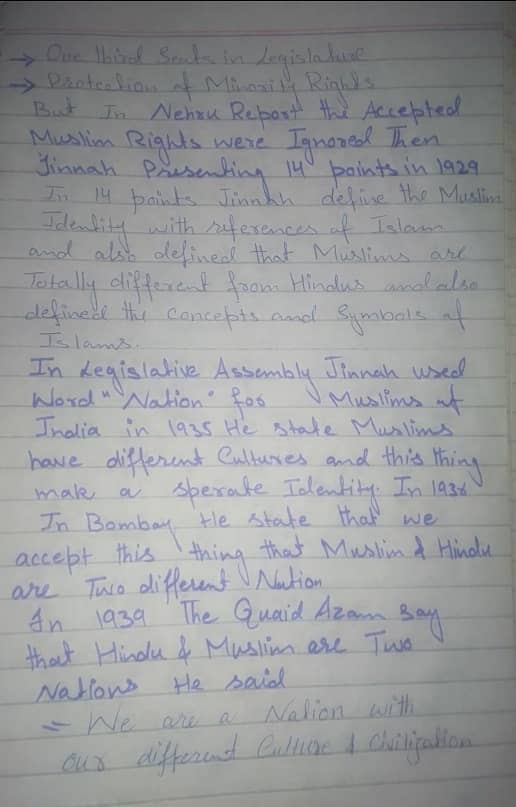 → One third Seats in Legislature
→ Protection of Minority Rights
But In Nehru Report the Accepted
Muslim Rights were Ignored Then
Jinnah Presenting 14 points in 1929
In 14 points Jinnah define the Muslim
Identity with references of Islam
and also defined that Muslims are
Totally different from Hindus and also
defined the concepts and Symbols of
Islams.
In Legislative Assembly Jinnah used
Word "Nation" for Muslims of
India in 1935 He state Muslims
have different Cultures and this thing
mak a sperate Identity. In 1936
In Bombay He state that we
accept this thing that Muslim & Hindu
are Two different Nation
In 1939 The Quaid Azam say
that Hindu & Muslim are Two
Nations He said
= We are a Nation with
our different Culture & Civilization